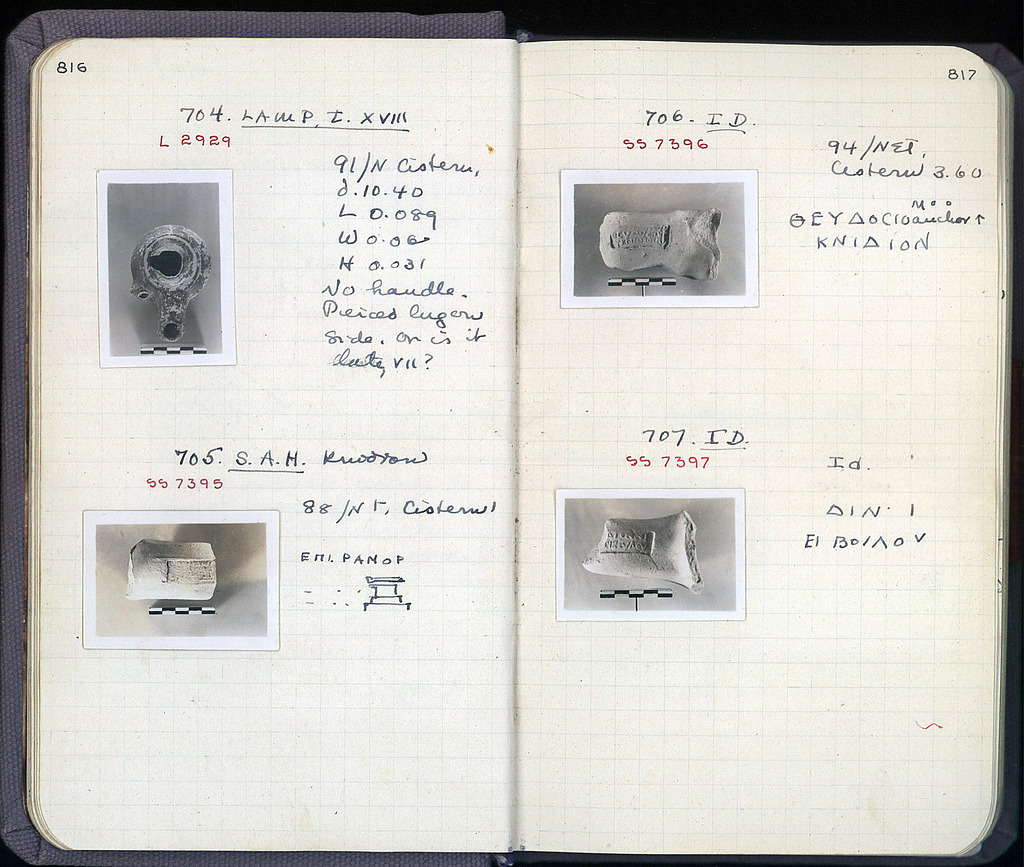 816
704. LAMP, T. XVIII
L 2929
91/N Cistern,
d. 10.40
L 0.089
W 0.06
H 0.031
No handle.
Pierced lug on
side. Or is it
VII?
705. S.A.H. Knidian
SS 7395
88/NΓ, Cistern
ΕΠΙ ΡΑΝΟΡ
817
706. ID.
SS 7396
94/NΣΤ,
Cistern 3.60
ΘΕΥΔΟCΙΟ anchor ↑
ΚΝΙΔΙΟΝ
707. ID.
SS 7397
Id.
ΔΙΝ· Ι
ΕΙ ΒΟΙΛΟΥ